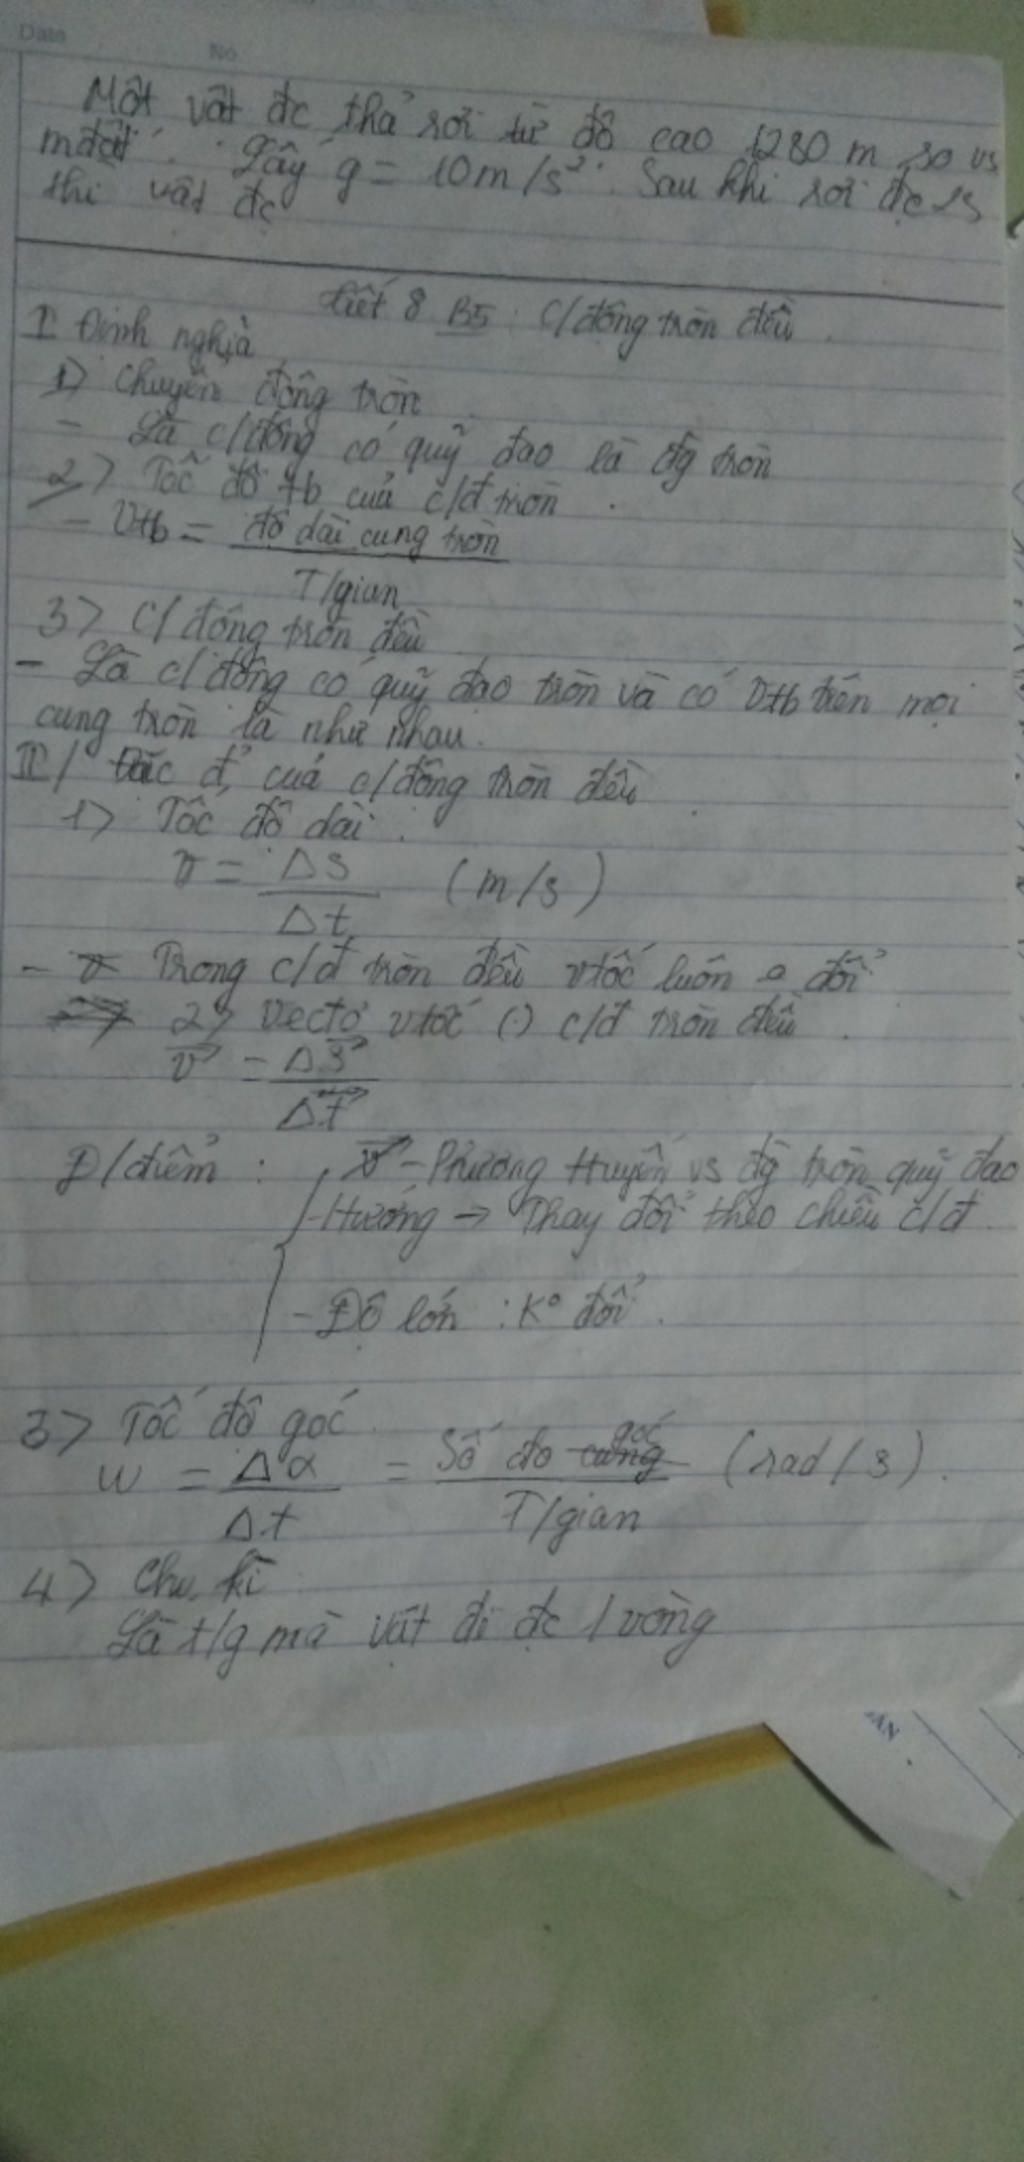 Date
No
Một vật đc thả rơi từ độ cao 1280 m so vs
mđất. Lấy g = 10m/s². Sau khi rơi đc 2s
thì vật đc
Tiết 8 B5: C/động tròn đều.
I Định nghĩa
1) Chuyển động tròn
- Là c/động có quỹ đạo là đg tròn
2) Tốc độ tb của c/đ tròn
- Vtb = độ dài cung tròn
T/gian
3) C/động tròn đều
- Là c/động có quỹ đạo tròn và có Vtb trên mọi
cung tròn là như nhau.
II/ Tốc đ, của c/động tròn đều
1) Tốc độ dài.
v = Δs (m/s)
Δt
- Trong c/đ tròn đều vtốc luôn o đổi
2) Vectơ vtốc (.) c/đ tròn đều.
v⃗ = Δs⃗
Δt
Đ/điểm : v⃗ - Phương ttuyến vs đg tròn quỹ đạo
- Hướng → Thay đổi theo chiều c/đ.
- Độ lớn : K° đổi.
3) Tốc độ góc
w = Δα = Số đo góc (rad/s).
Δt T/gian
4) Chu kì
Là t/g mà vật đi đc 1 vòng
ÁN